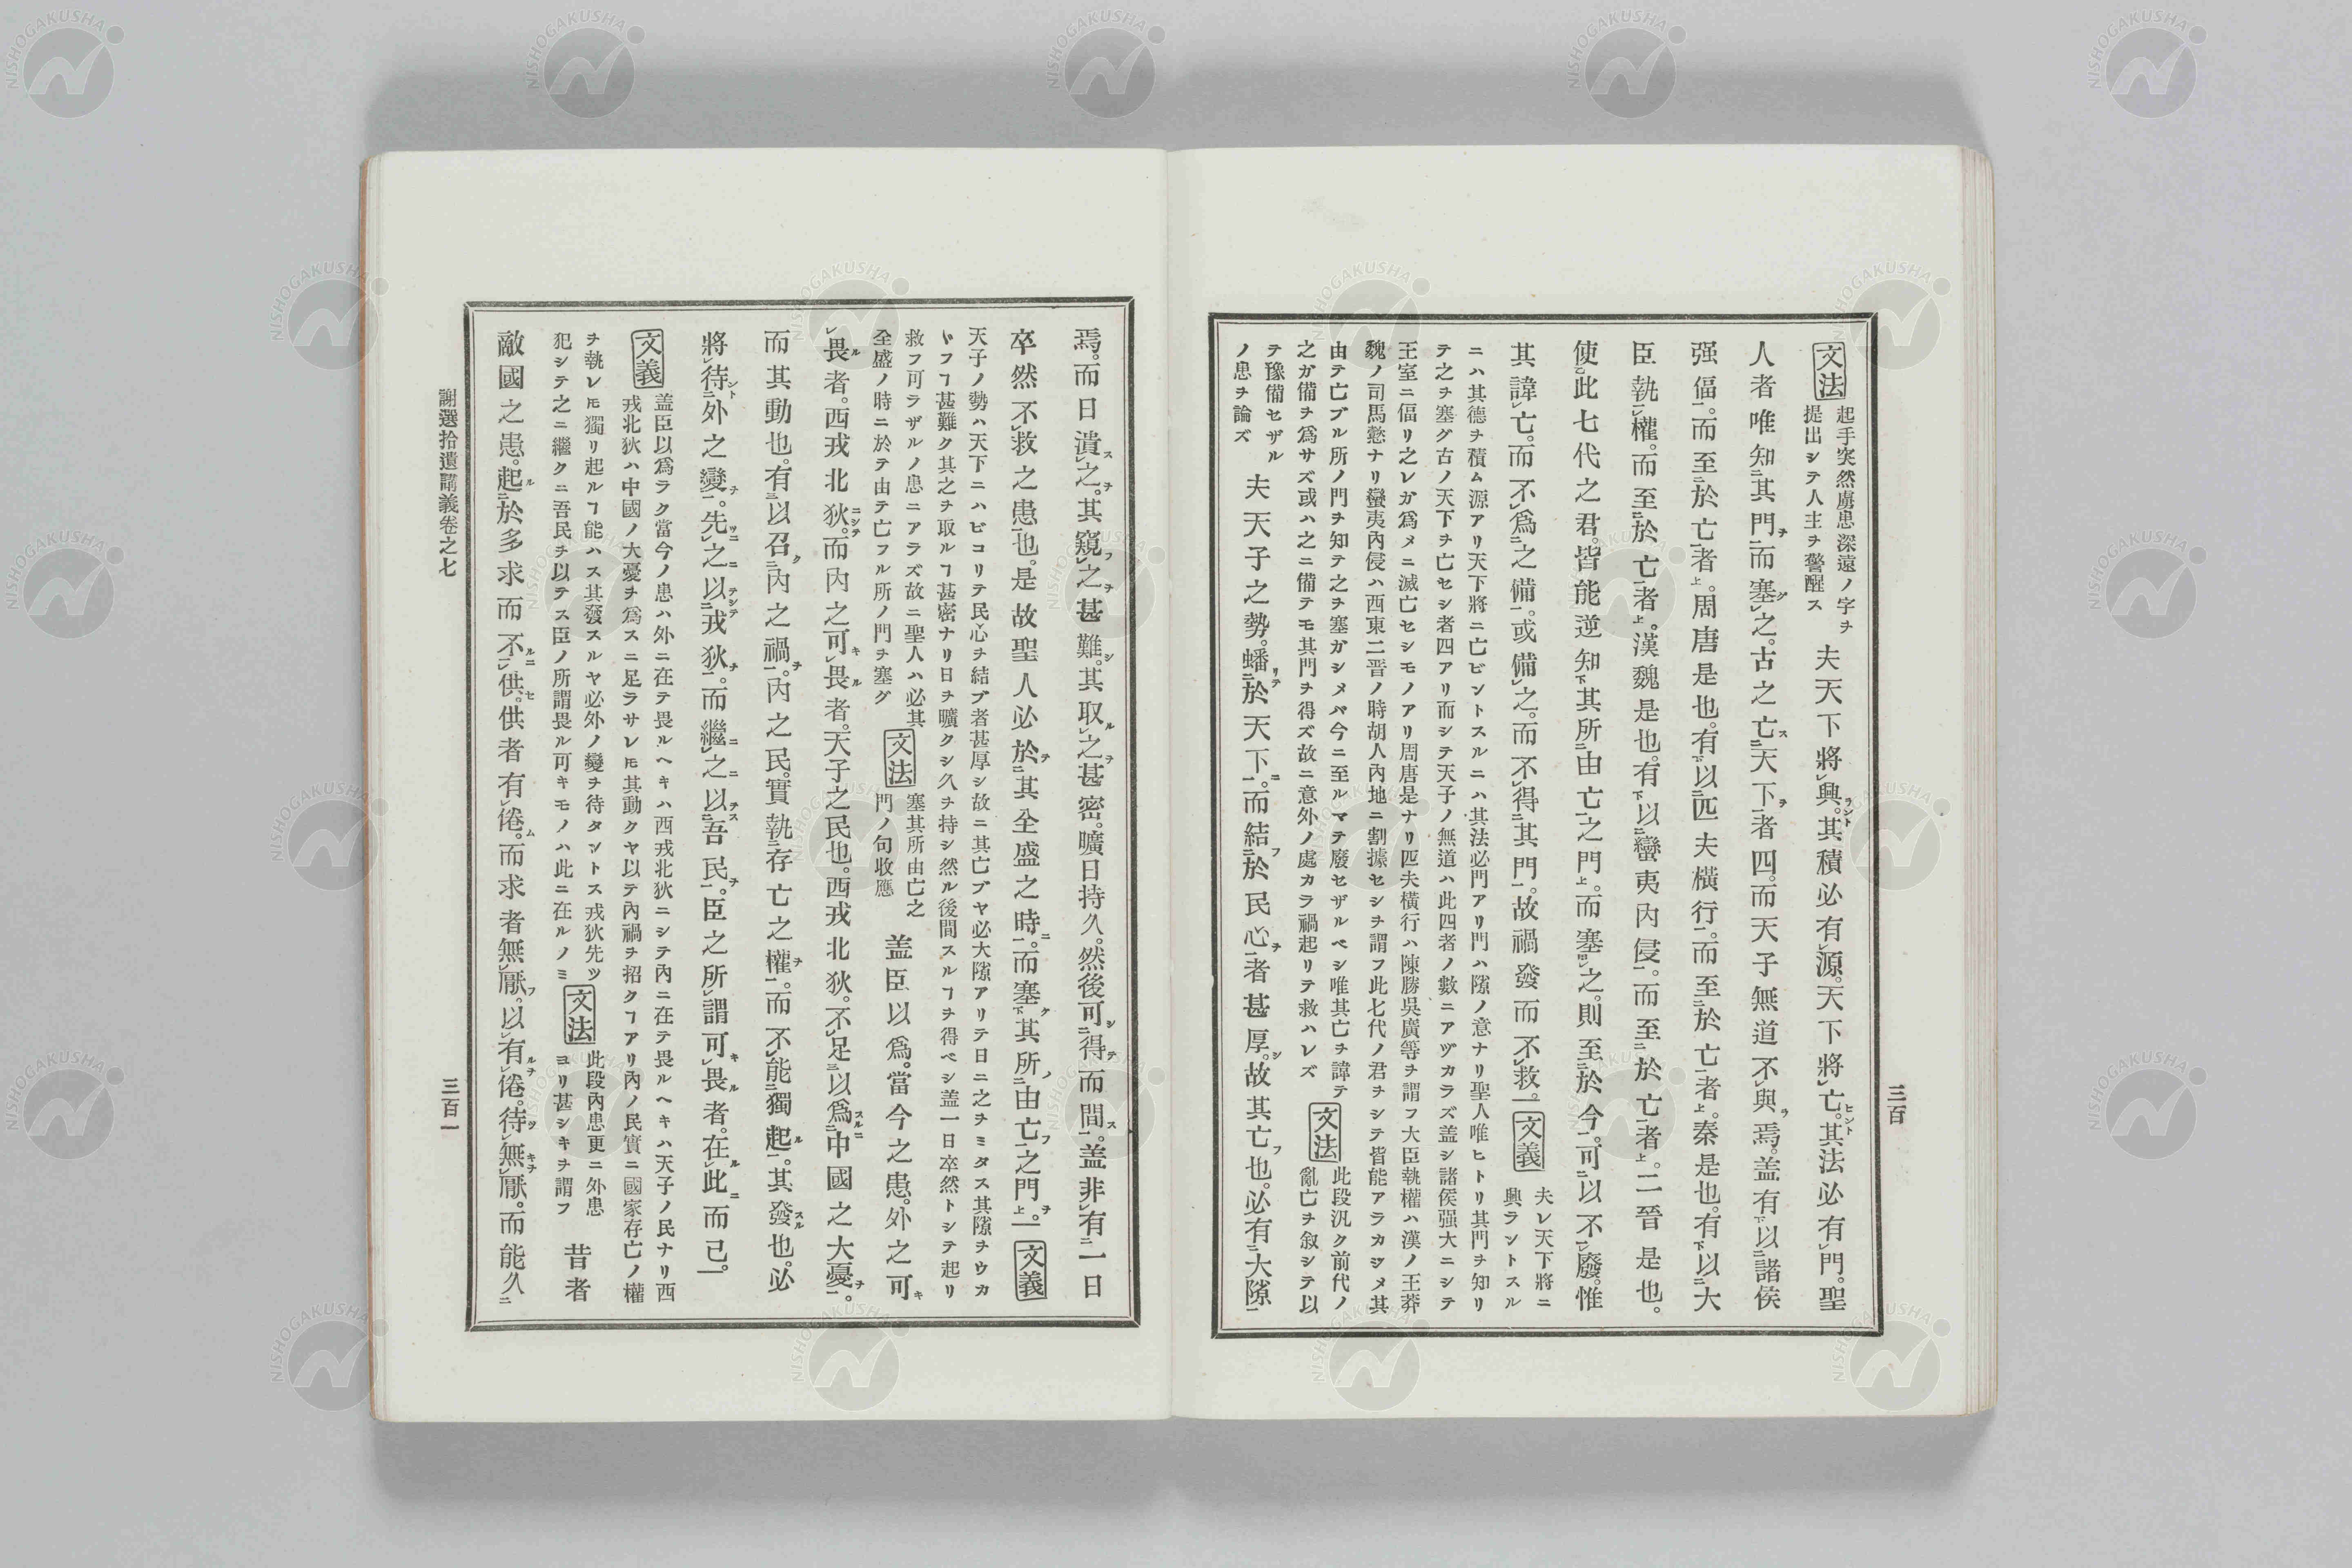 三百
文法 起手突然慮患深遠ノ字ヲ
提出シテ人主ヲ警醒ス 夫天下將興。其積必有源。天下將亡。其法必有門。聖
人者唯知其門而塞之。古之亡天下者四。而天子無道不與焉。盖有以諸侯
强偪。而至於亡者。周唐是也。有以匹夫橫行。而至於亡者。秦是也。有以大
臣執權。而至於亡者。漢魏是也。有以蠻夷內侵。而至於亡者。二晉是也。
使此七代之君。皆能逆知其所由亡之門。而塞之。則至於今。可以不廢。惟
其諱亡。而不爲之備。或備之。而不得其門。故禍發而不救。 文義 夫レ天下將ニ
興ラントスル
ニハ其德ヲ積ム源アリ天下將ニ亡ビントスルニハ其法必門アリ門ハ隙ノ意ナリ聖人唯ヒトリ其門ヲ知リ
テ之ヲ塞グ古ノ天下ヲ亡セシ者四アリ而シテ天子ノ無道ハ此四者ノ數ニアヅカラズ盖シ諸侯强大ニシテ
王室ニ偪リ之レガ爲メニ滅亡セシモノアリ周唐是ナリ匹夫橫行ハ陳勝吳廣等ヲ謂フ大臣執權ハ漢ノ王莽
魏ノ司馬懿ナリ蠻夷內侵ハ西東二晉ノ時胡人內地ニ割據セシヲ謂フ此七代ノ君ヲシテ皆能アラカジメ其
由テ亡ブル所ノ門ヲ知テ之ヲ塞ガシメバ今ニ至ルマデ廢セザルベシ唯其亡ヲ諱テ
之ガ備ヲ爲サズ或ハ之ニ備テモ其門ヲ得ズ故ニ意外ノ處カラ禍起リテ救ハレズ 文法 此段汎ク前代ノ
亂亡ヲ敘シテ以
テ豫備セザル
ノ患ヲ論ズ 夫天子之勢。蟠於天下。而結於民心者甚厚。故其亡也。必有大隙
焉。而日潰之。其窺之甚難。其取之甚密。曠日持久。然後可得而間。盖非有一日
卒然不救之患也。是故聖人必於其全盛之時。而塞其所由亡之門。 文義
天子ノ勢ハ天下ニハビコリテ民心ヲ結ブ者甚厚シ故ニ其亡ブヤ必大隙アリテ日ニ之ヲミダス其隙ヲウカ
ヾフヿ甚難ク其之ヲ取ルヿ甚密ナリ日ヲ曠クシ久ヲ持シ然ル後間スルヿヲ得ベシ盖一日卒然トシテ起リ
救フ可ラザルノ患ニアラズ故ニ聖人ハ必其
全盛ノ時ニ於テ由テ亡フル所ノ門ヲ塞グ 文法 塞其所由亡之
門ノ句收應 盖臣以爲。當今之患。外之可
畏者。西戎北狄。而內之可畏者。天子之民也。西戎北狄。不足以爲中國之大憂。
而其動也。有以召內之禍。內之民。實執存亡之權。而不能獨起。其發也。必
將待外之變。先之以戎狄。而繼之以吾民。臣之所謂可畏者。在此而已。
文義 盖臣以爲ラク當今ノ患ハ外ニ在テ畏ルヘキハ西戎北狄ニシテ內ニ在テ畏ルヘキハ天子ノ民ナリ西
戎北狄ハ中國ノ大憂ヲ爲スニ足ラサレ𪜈其動クヤ以テ內禍ヲ招クヿアリ內ノ民實ニ國家存亡ノ權
ヲ執レ𪜈獨リ起ルヿ能ハス其發スルヤ必外ノ變ヲ待タントス戎狄先ツ
犯シテ之ニ繼クニ吾民ヲ以テス臣ノ所謂畏ル可キモノハ此ニ在ルノミ 文法 此段內患更ニ外患
ヨリ甚シキヲ謂フ 昔者
敵國之患。起於多求而不供。供者有倦。而求者無厭。以有倦。待無厭。而能久
謝選拾遺講義卷之七
三百一